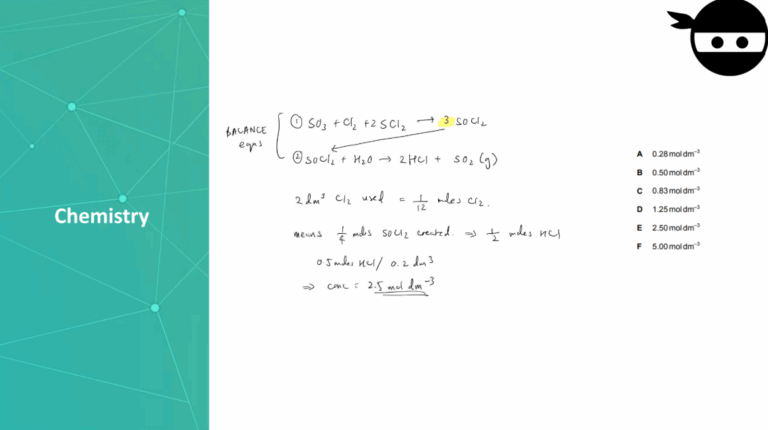 Chemistry
BALANCE
eqns
① SO₃ + Cl₂ + 2 SCl₂ → 3 SOCl₂
② SOCl₂ + H₂O → 2HCl + SO₂ (g)
2 dm³ Cl₂ used = 1/12 moles Cl₂.
means 1/4 mols SOCl₂ created. ⇒ 1/2 moles HCl
0.5 moles HCl / 0.2 dm³
⇒ conc = 2.5 mol dm⁻³
A 0.28 mol dm⁻³
B 0.50 mol dm⁻³
C 0.83 mol dm⁻³
D 1.25 mol dm⁻³
E 2.50 mol dm⁻³
F 5.00 mol dm⁻³